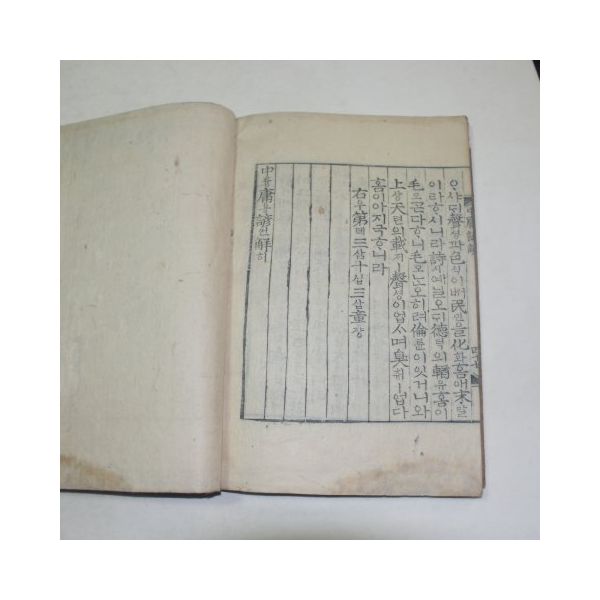 ᄋᆞ샤ᄃᆡ聲셩과色ᄉᆡᆨ이ᄡᅥ民민을化화홈애末말
이라ᄒᆞ시니라詩시예ᄀᆞᆯ오ᄃᆡ德덕의輶유홈이
毛모ᄀᆞᆮ다ᄒᆞ니毛모ᄂᆞᆫ오히려倫륜이잇거니와
上샹天텬의載ᄌᆡㅣ聲셩이업ᄉᆞ며臭ᄎᆔㅣ업다
홈이아지극ᄒᆞ니라
右우第뎨三삼十십三삼章쟝
中듕庸용諺언解ᄒᆡ